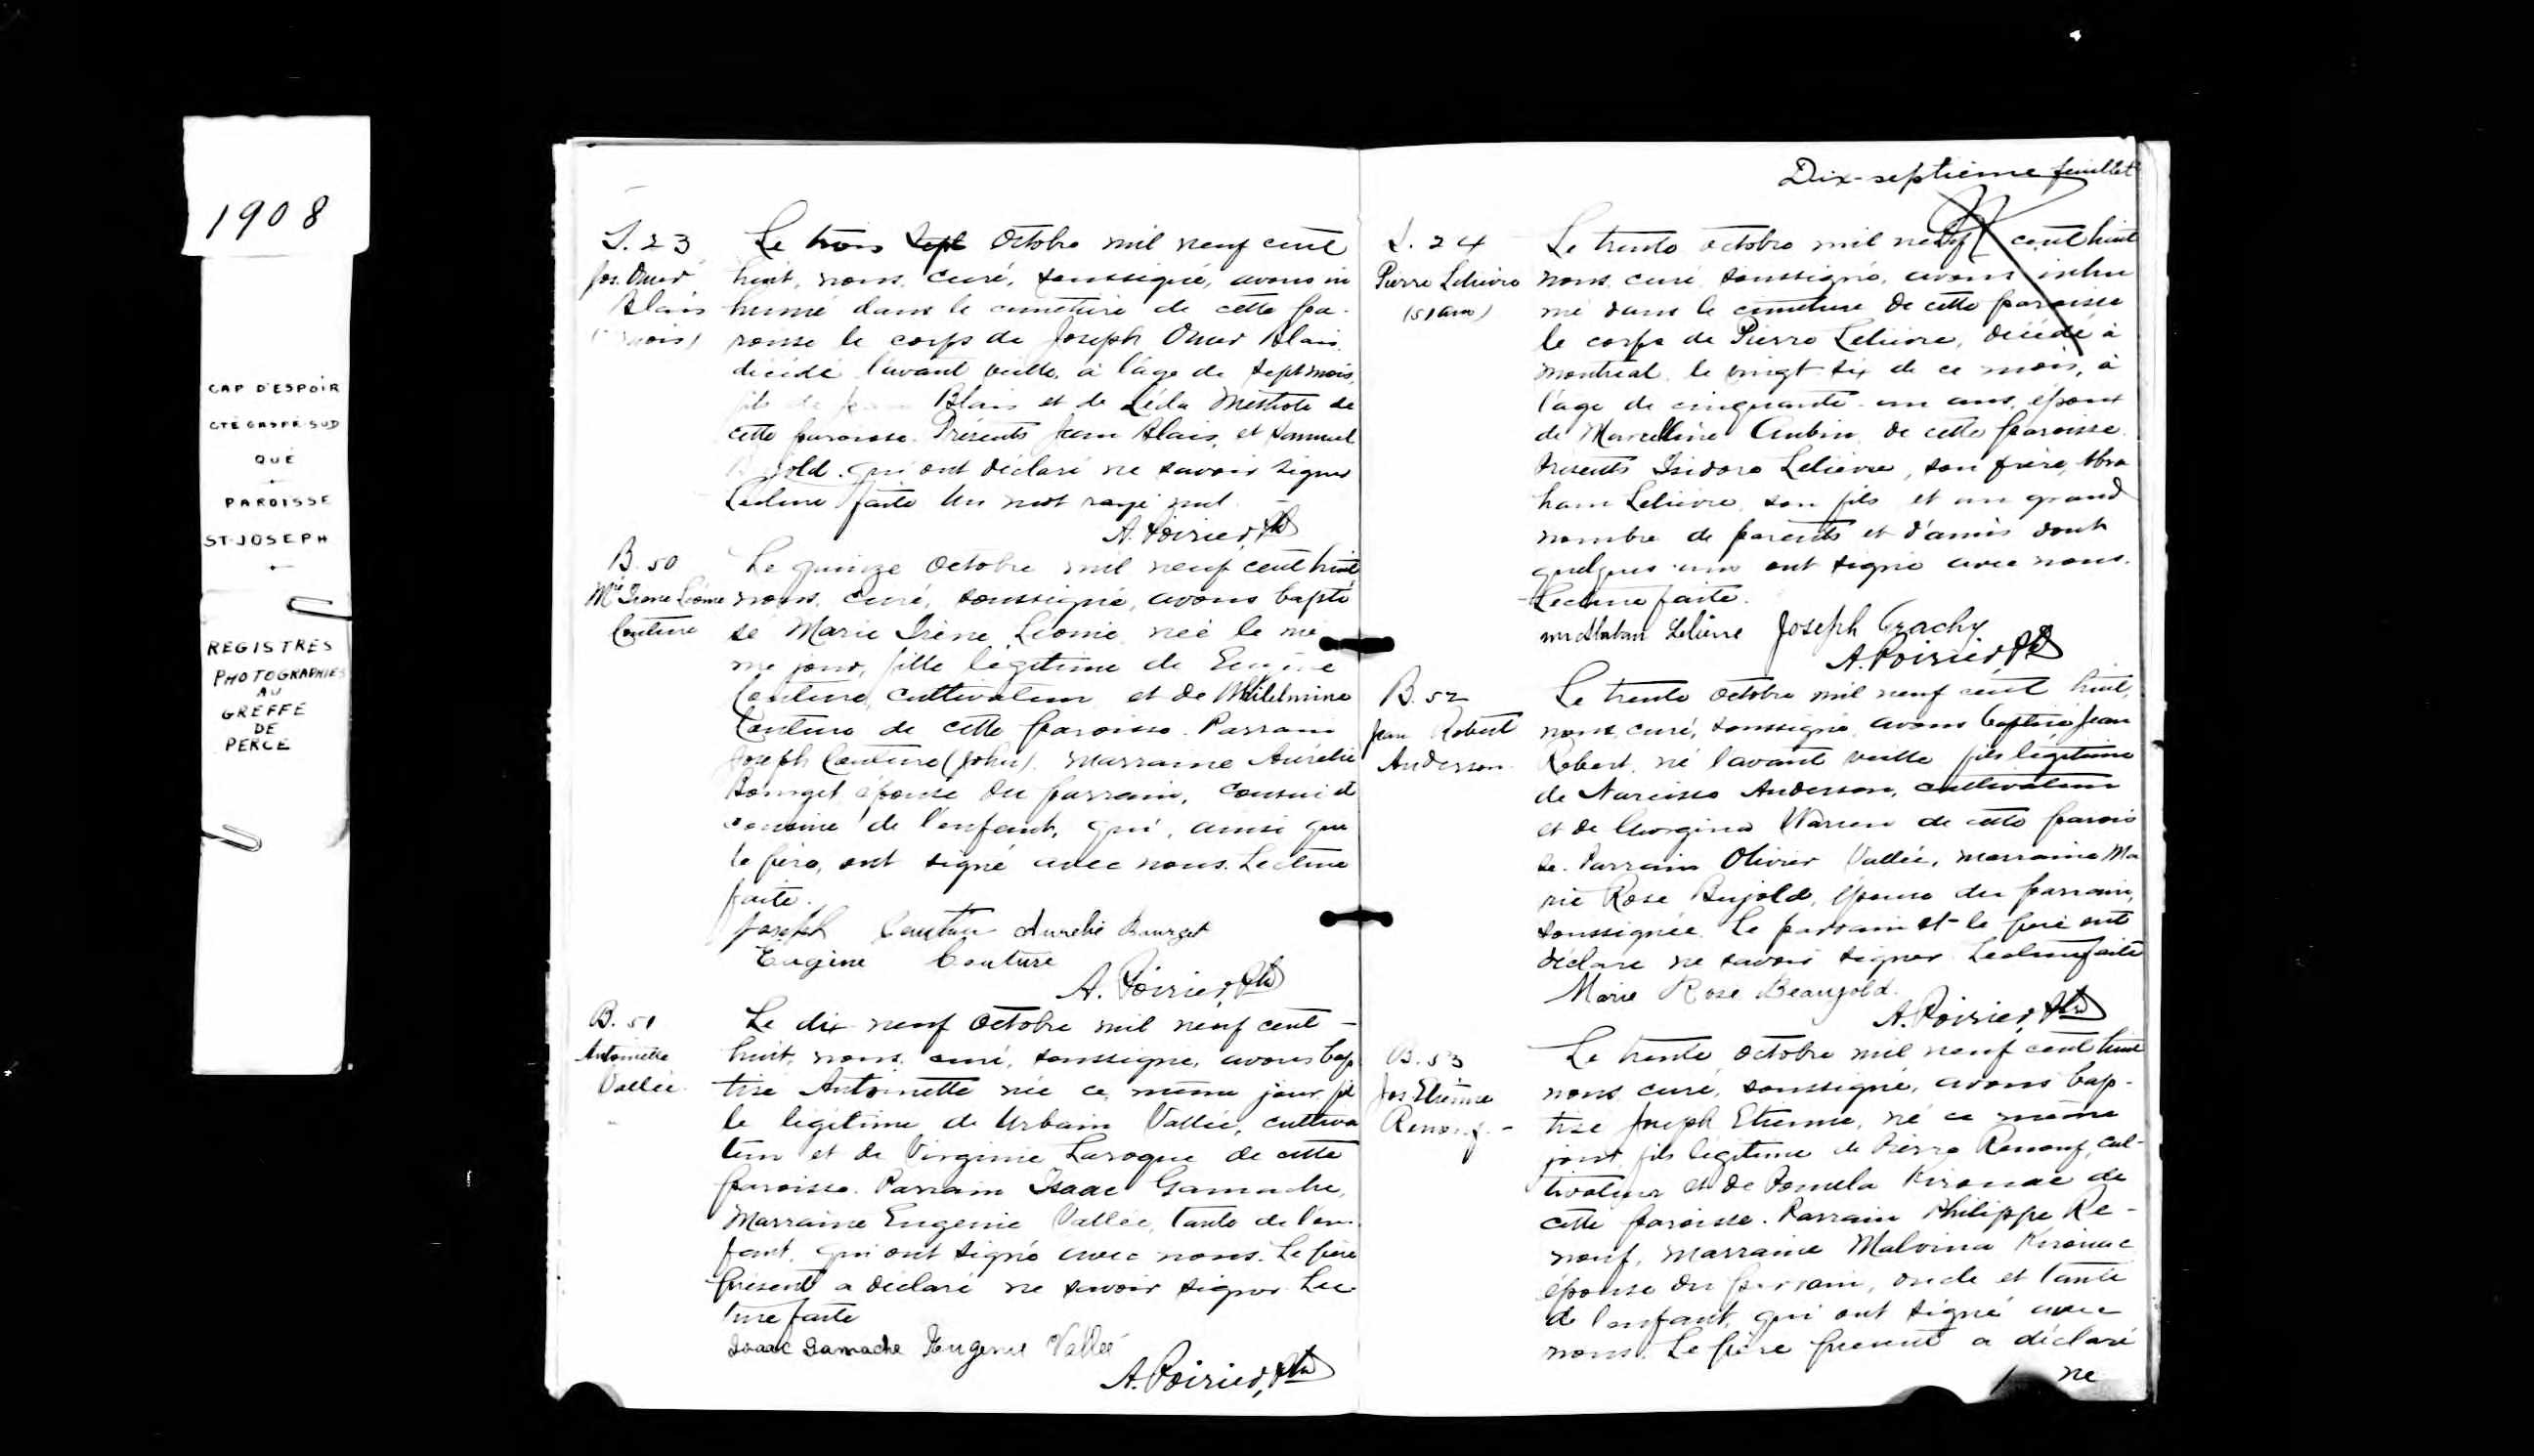 1908
CAP D'ESPOIR
CTÉ GASPÉ SUD
QUÉ
PAROISSE
ST-JOSEPH
REGISTRES
PHOTOGRAPHIES
AU
GREFFE
DE
PERCÉ
S. 23
Jos. Omer
Blais
mois)
Le trois Sept Octobre mil neuf cent
huit, nous, curé, soussigné, avons in
humé dans le cimetière de cette pa-
roisse le corps de Joseph Omer Blais
décédé l'avant veille, à l'âge de sept mois,
fils de Blais et de Léda Méthote de
cette paroisse. Présents Jean Blais, et Samuel
qui ont déclaré ne savoir signer
Lecture faite Un mot rayé nul
A. Poirier, Ptre
B. 50
Mie Irène Léonie
Couture
Le quinze Octobre mil neuf cent huit
nous, curé, soussigné, avons bapti
sé Marie Irène Léonie née le mê
me jour, fille légitime de Eugène
Couture, cultivateur et de Wilelmine
Couture de cette paroisse. Parrain
Joseph Couture (John). Marraine Aurélie
Bourget épouse du parrain, cousin et
cousine de l'enfant, qui, ainsi que
le père, ont signé avec nous. Lecture
faite.
Joseph Couture Aurelie Bourget
Eugène Couture
A. Poirier, Ptre
B. 51
Antoinette
Vallée
Le dix neuf Octobre mil neuf cent
huit, nous, curé, soussigné, avons bap
tisé Antoinette née ce même jour fil
le légitime de Urbain Vallée, cultiva
teur et de Virginie Laroque de cette
paroisse. Parrain Isaac Gamache,
Marraine Eugenie Vallée, tante de l'en-
fant, qui ont signé avec nous. Le père
présent a déclaré ne savoir signer Lec
ture faite
Isaac Gamache Eugenie Vallée
A. Poirier, Ptre
Dix-septième feuillet
S. 24
Pierre Lelièvre
(51 ans)
Le trente octobre mil neuf cent huit
nous, curé soussigné, avons inhu
mé dans le cimetière de cette paroisse
le corps de Pierre Lelièvre, décédé à
Montréal, le vingt-six de ce mois, à
l'âge de cinquante-un ans, époux
de Marcelline Aubin, de cette paroisse.
Présents Isidore Lelièvre, son frère, Abra
ham Lelièvre, son fils et un grand
nombre de parents et d'amis dont
quelques-uns ont signé avec nous.
Lecture faite.
Lelièvre Joseph Grachy
A. Poirier, Ptre
B. 52
Jean Robert
Anderson
Le trente octobre mil neuf cent huit,
nous, curé, soussigné, avons baptisé Jean
Robert, né l'avant veille fils légitime
de Narcisse Anderson, cultivateur
et de Georgina Warren de cette parois
se. Parrain Olivier Vallée, marraine Ma
rie Rose Bujold, épouse du parrain,
soussignée. Le parrain et le père ont
déclaré ne savoir signer Lecture faite
Marie Rose Beaujold.
A. Poirier, Ptre
B. 53
Jos Etienne
Renouf.
Le trente octobre mil neuf cent huit
nous, curé, soussigné, avons bap-
tisé Joseph Etienne, né ce même
jour, fils légitime de Pierre Renouf, cul-
tivateur et de Pamela Kirouac de
cette paroisse. Parrain Philippe Re-
nouf, marraine Malvina Kirouac
épouse du parrain, oncle et tante
de l'enfant, qui ont signé avec
nous. Le père présent a déclaré
ne